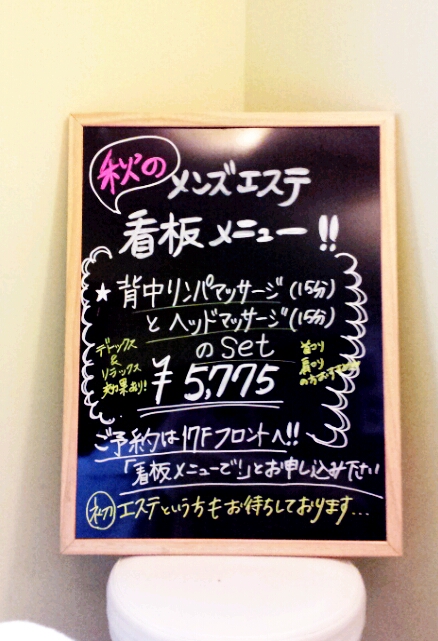 秋の
メンズエステ
看板メニュー!!
★背中リンパマッサージ(15分)
とヘッドマッサージ(15分)
のSet
デトックス
&
リラックス
効果あり!
¥5,775
首コリ
肩コリ
の方おすすめ
ご予約は17Fフロントへ!!
「看板メニューで!」とお申し込み下さい
初エステという方もお待ちしております...